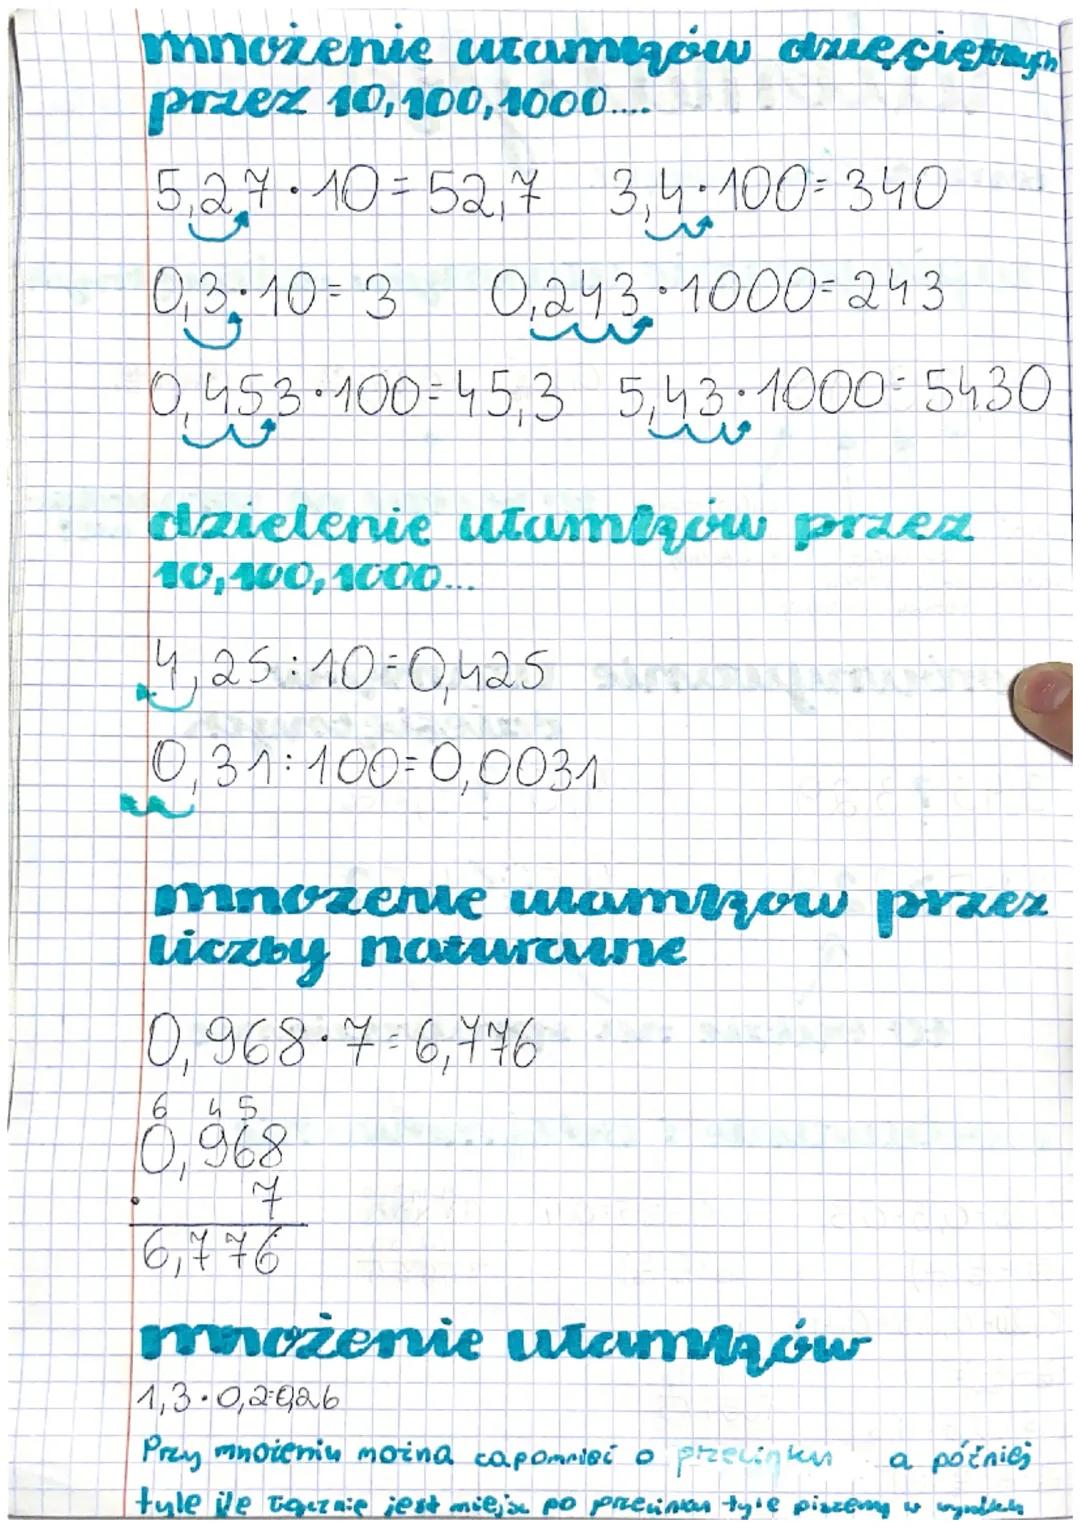 mnożenie ułamków dziesiętnych
przez 10, 100, 1000....
5,27 · 10 = 52,7 3,4 · 100 = 340
0,3 · 10 = 3 0,243 · 1000 = 243
0,453 · 100 = 45,3 5,43 · 1000 = 5430
dzielenie ułamków przez
10, 100, 1000...
4,25 : 10 = 0,425
0,31 : 100 = 0,0031
mnożenie ułamków przez
liczby naturalne
0,968 · 7 = 6,776
6 4 5
0,968
· 7
6,776
mnożenie ułamków
1,3 · 0,2 = 0,26
Przy mnożeniu można zapomnieć o przecinku a później
tyle ile łącznie jest miejsc po przecinku tyle piszemy w wyniku